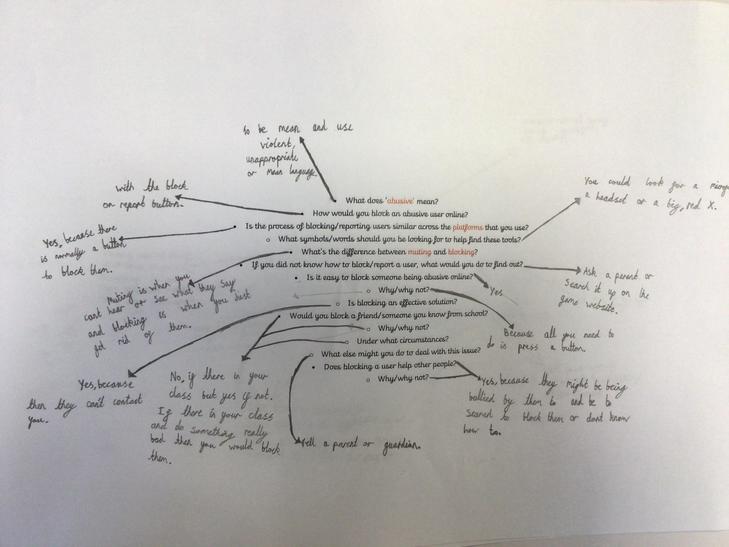 to be mean and use
violent,
unappropriate
or mean language.
with the block
or report button.
You could look for a
a headset or a big, red X.
What does 'abusive' mean?
How would you block an abusive user online?
Is the process of blocking/reporting users similar across the platforms that you use?
What symbols/words should you be looking for to help find these tools?
What's the difference between muting and blocking?
If you did not know how to block/report a user, what would you do to find out?
Is it easy to block someone being abusive online?
Why/why not?
Is blocking an effective solution?
Would you block a friend/someone you know from school?
Why/why not?
Under what circumstances?
What else might you do to deal with this issue?
Does blocking a user help other people?
Why/why not?
Yes, because there
is normally a button
to block them.
Muting is when you
cant hear or see what they say
and blocking is when you just
get rid of them.
Ask a parent or
Search it up on the
game website.
Yes.
Because all you need
to do is press a button.
Yes, because
then they can't contact
you.
No, if there in your
class but yes if not.
If there in your class
and do something really
bad then you would block
them.
Tell a parent or guardian.
Yes, because they might be being
bullied by them to and be to
scared to block them or dont know
how to.